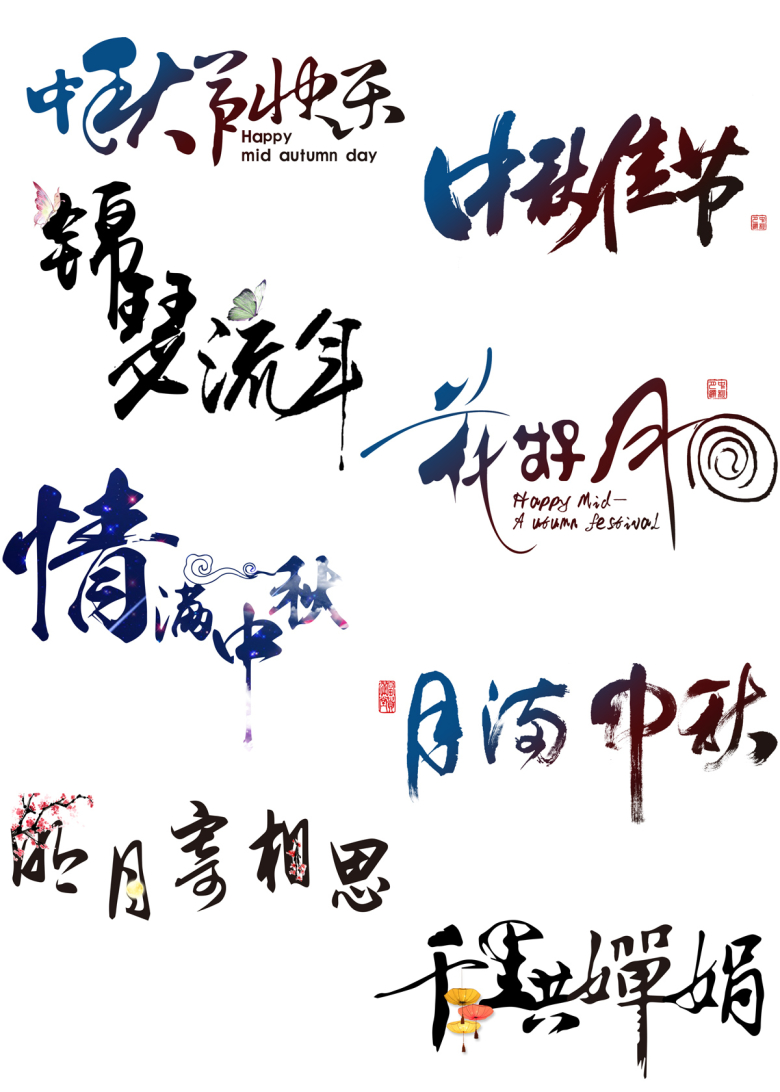 中秋节快乐
Happy
mid autumn day
中秋佳节
锦瑟流年
花好月圆
Happy Mid-
Autumn festival
情满中秋
月满中秋
明月寄相思
千里共嬋娟